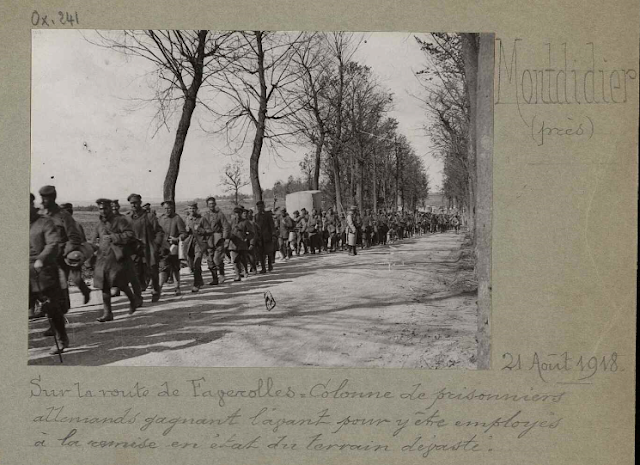 Ox. 241
Montdidier
(près)
21 Août 1918.
Sur la route de Faverolles. Colonne de prisonniers
allemands gagnant l'avant pour y être employés
à la remise en état du terrain dévasté.